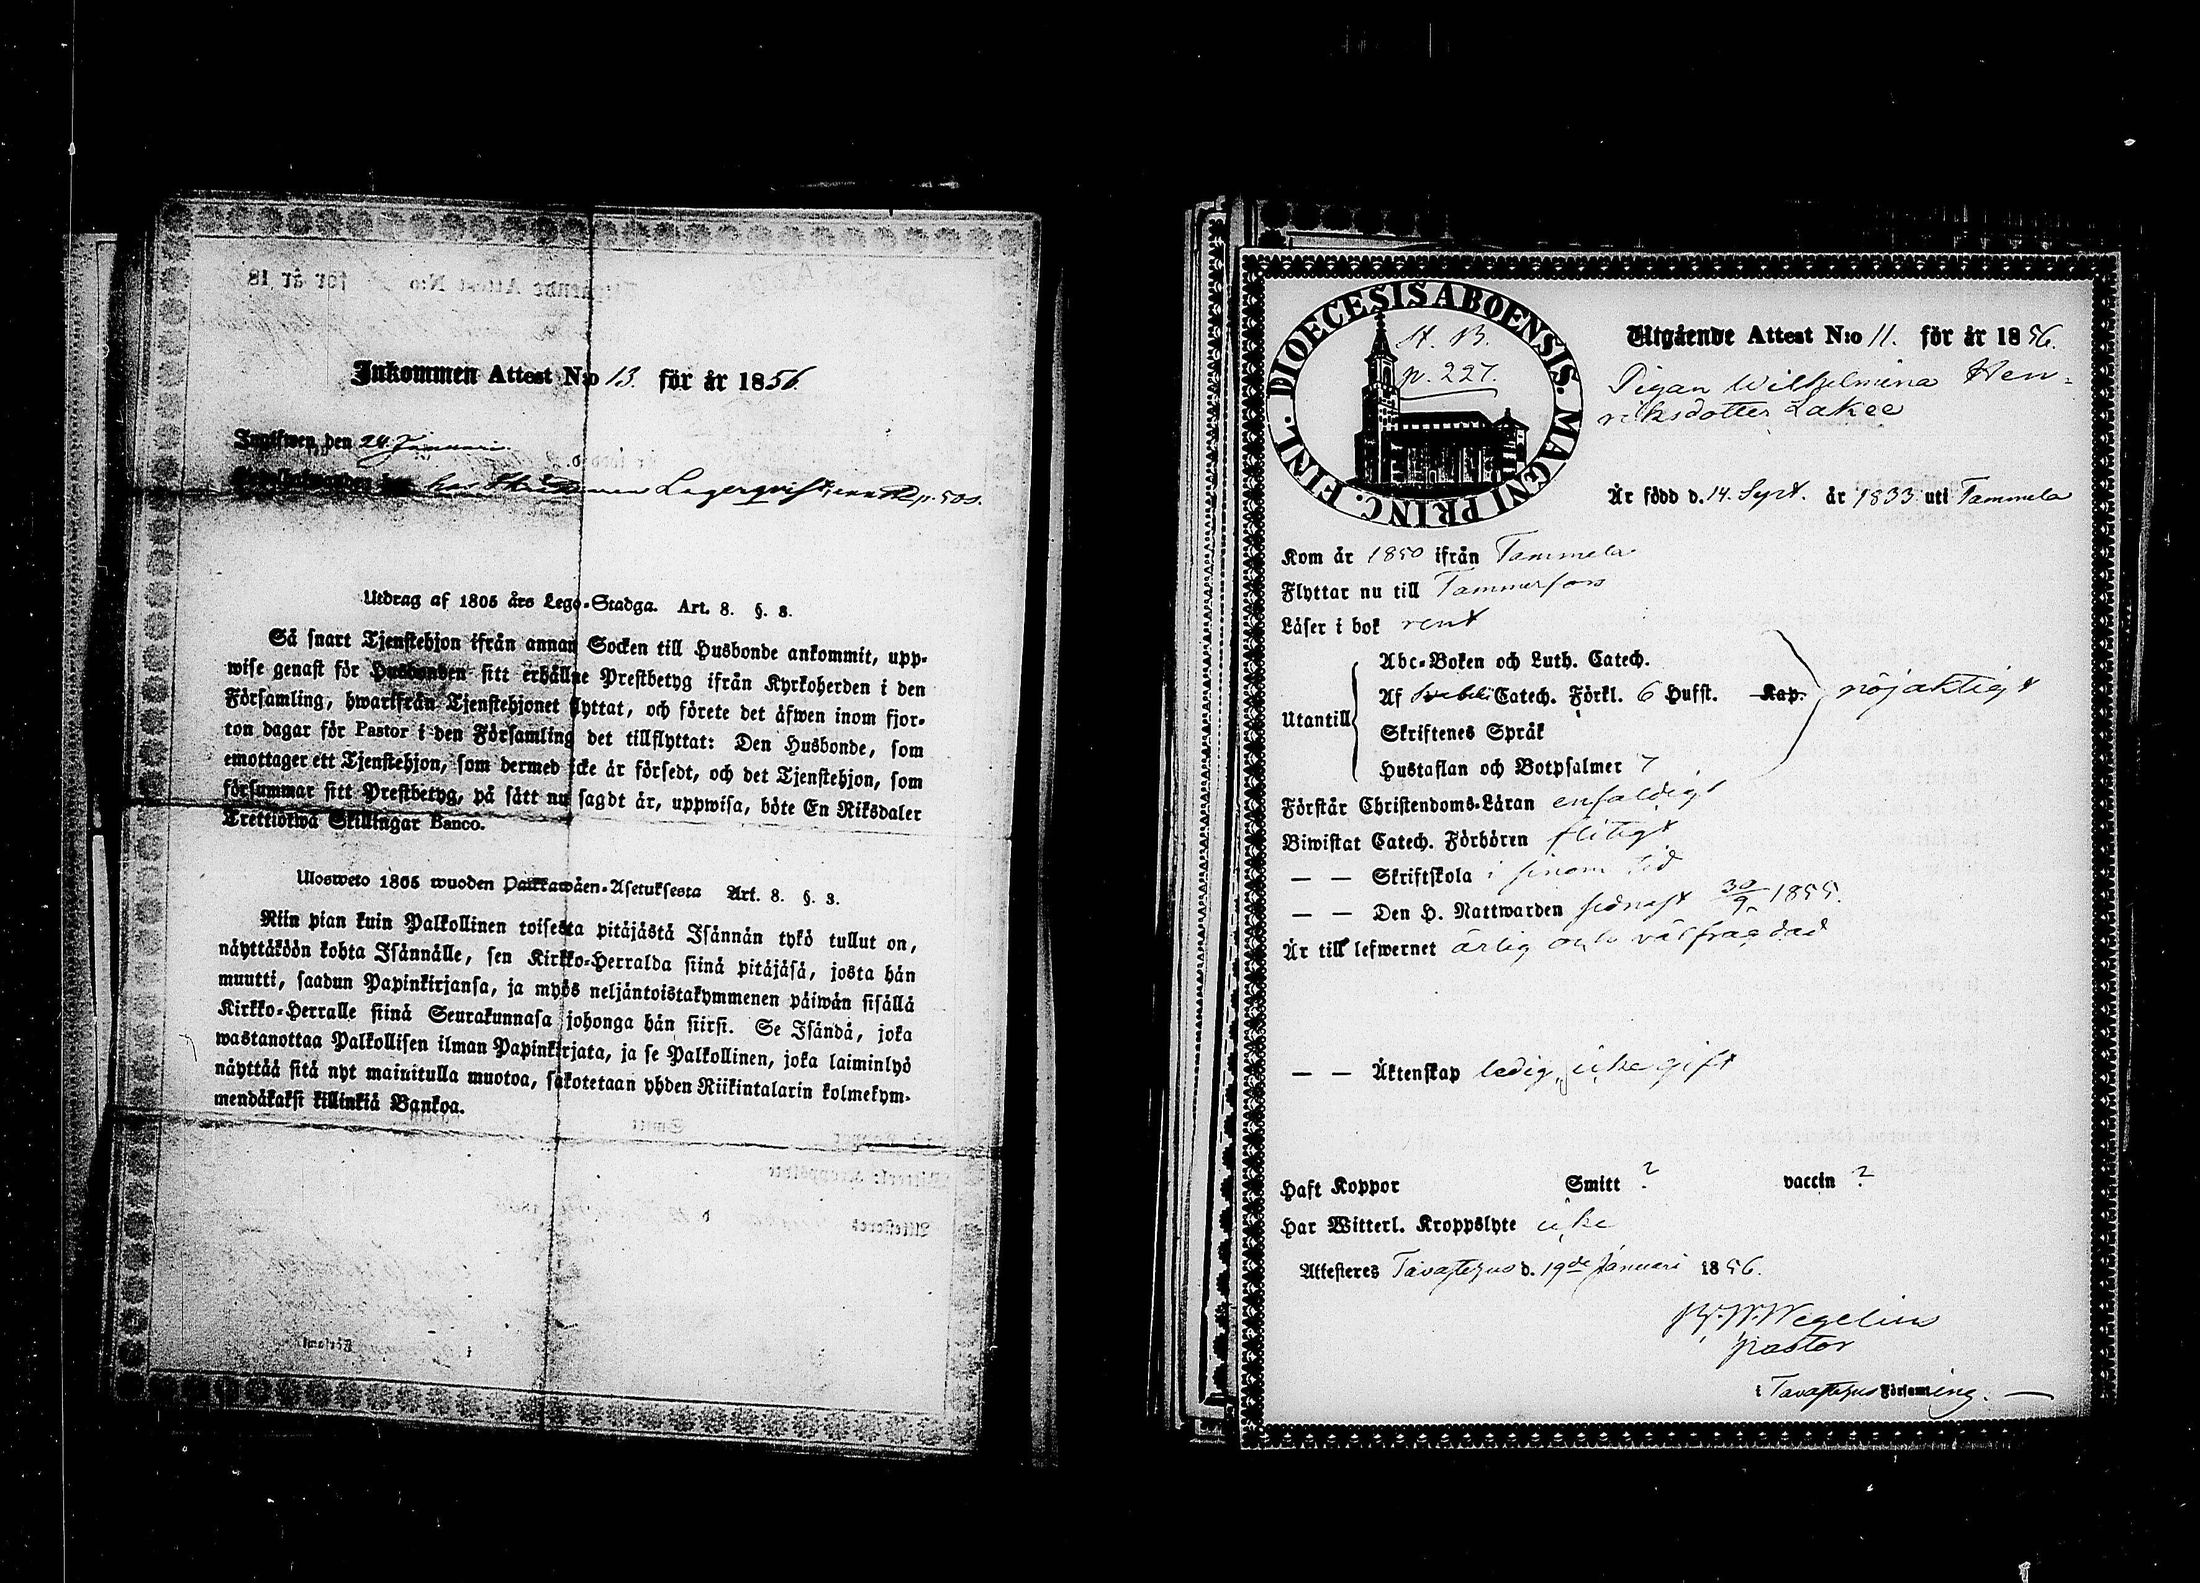 Inkommen Attest N:o 13. för år 1856.
Ingifwen den 24. Januari
hos Lagerqvist p. 500.
Utdrag af 1805 års Lego-Stadga. Art. 8. §. 8.
Så snart Tjenstehjon ifrån annan Socken till Husbonde ankommit, upp-
wise genast för Husbonden sitt erhållne Prestbetyg ifrån Kyrkoherden i den
Församling, hwarifrån Tjenstehjonet flyttat, och förete det äfwen inom fjor-
ton dagar för Pastor i den Församling det tillflyttat: Den Husbonde, som
emottager ett Tjenstehjon, som dermed icke är försedt, och det Tjenstehjon, som
försummar sitt Prestbetyg, på sätt nu sagdt är, uppwisa, böte En Riksdaler
Trettiotwå Skillingar Banco.
Ulosweto 1805 wuoden Palkkawäen-Asetuksesta Art. 8. §. 3.
Niin pian kuin Palkollinen toisesta pitäjästä Isännän tykö tullut on,
näyttäköön kohta Isännälle, sen Kirkko-Herralda siinä pitäjäsä, josta hän
muutti, saadun Papinkirjansa, ja myös neljäntoistakymmenen päiwän sisällä
Kirkko-Herralle siinä Seurakunnasa johonga hän siirsi. Se Isändä, joka
wastanottaa Palkollisen ilman Papinkirjata, ja se Palkollinen, joka laiminlyö
näyttää sitä nyt mainitulla muotoa, sakotetaan yhden Riikintalarin kolmekym-
mendäkaksi killinkiä Bankoa.
FINL. DIOECESIS ABOENSIS. MAGNI PRINC.
H. B.
p. 227.
Utgående Attest N:o 11. för år 1856.
Pigan Wilhelmina Hen-
riksdotter Lakee
Är född d. 14. Sept. år 1833 uti Tammela
Kom år 1850 ifrån Tammela
Flyttar nu till Tammerfors
Läser i bok rent
Utantill
Abc-Boken och Luth. Catech.
Af Svebelii Catech. Förkl. 6 Hufst. Kap. nöjaktigt
Skriftenes Språk
Hustaflan och Botpsalmer 7
Förstår Christendoms-Läran enfaldigt
Biwistat Catech. Förhören flitigt
— — Skriftskola i sinom tid
— — Den H. Nattwarden sednast 30/9 1855.
Är till lefwernet ärlig och välfrägdad
— — Äktenskap ledig, icke gift
Haft Koppor Smitt ? vaccin ?
Har Witterl. Kroppslyte icke
Attesteres Tavastehus d. 19de Januari 1856.
Wegelius
pastor
i Tavastehus Församling.